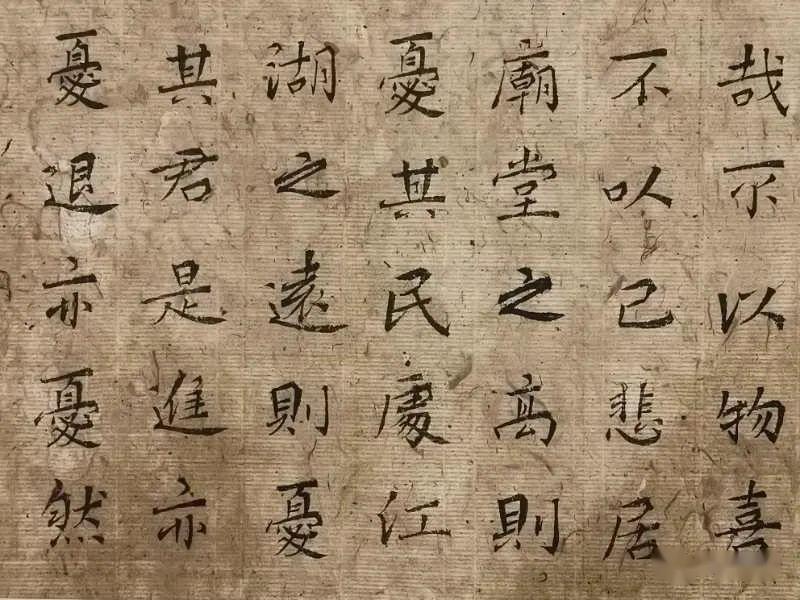 哉不以物喜
不以己悲居
廟堂之高則
憂其民處江
湖之遠則憂
其君是進亦
憂退亦憂然